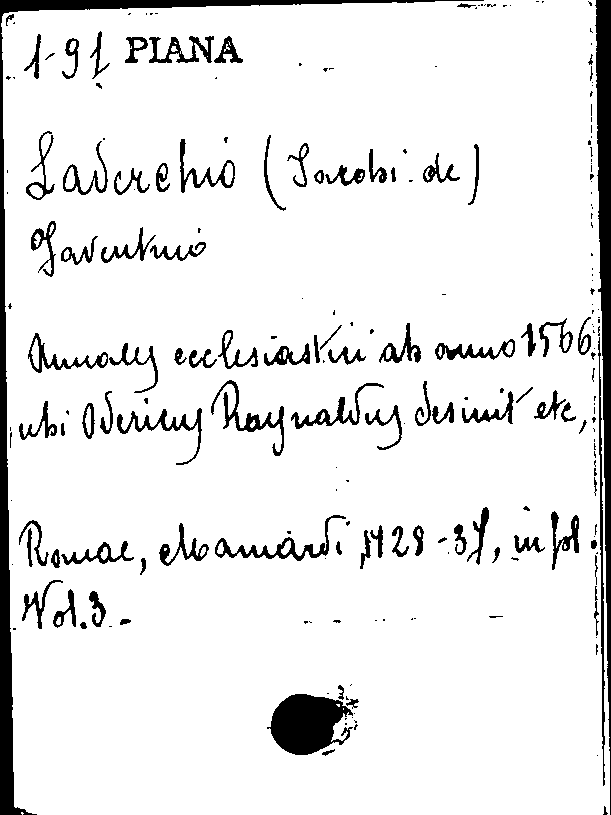 1-91 PIANA
Laderchio (Jacobi de)
Faventino
Annales ecclesiastici ab anno 1566.
ubi Odericus Raynaldus desinit etc,
Romae, Mainardi, 1728-37, in fol.
Vol. 3 -